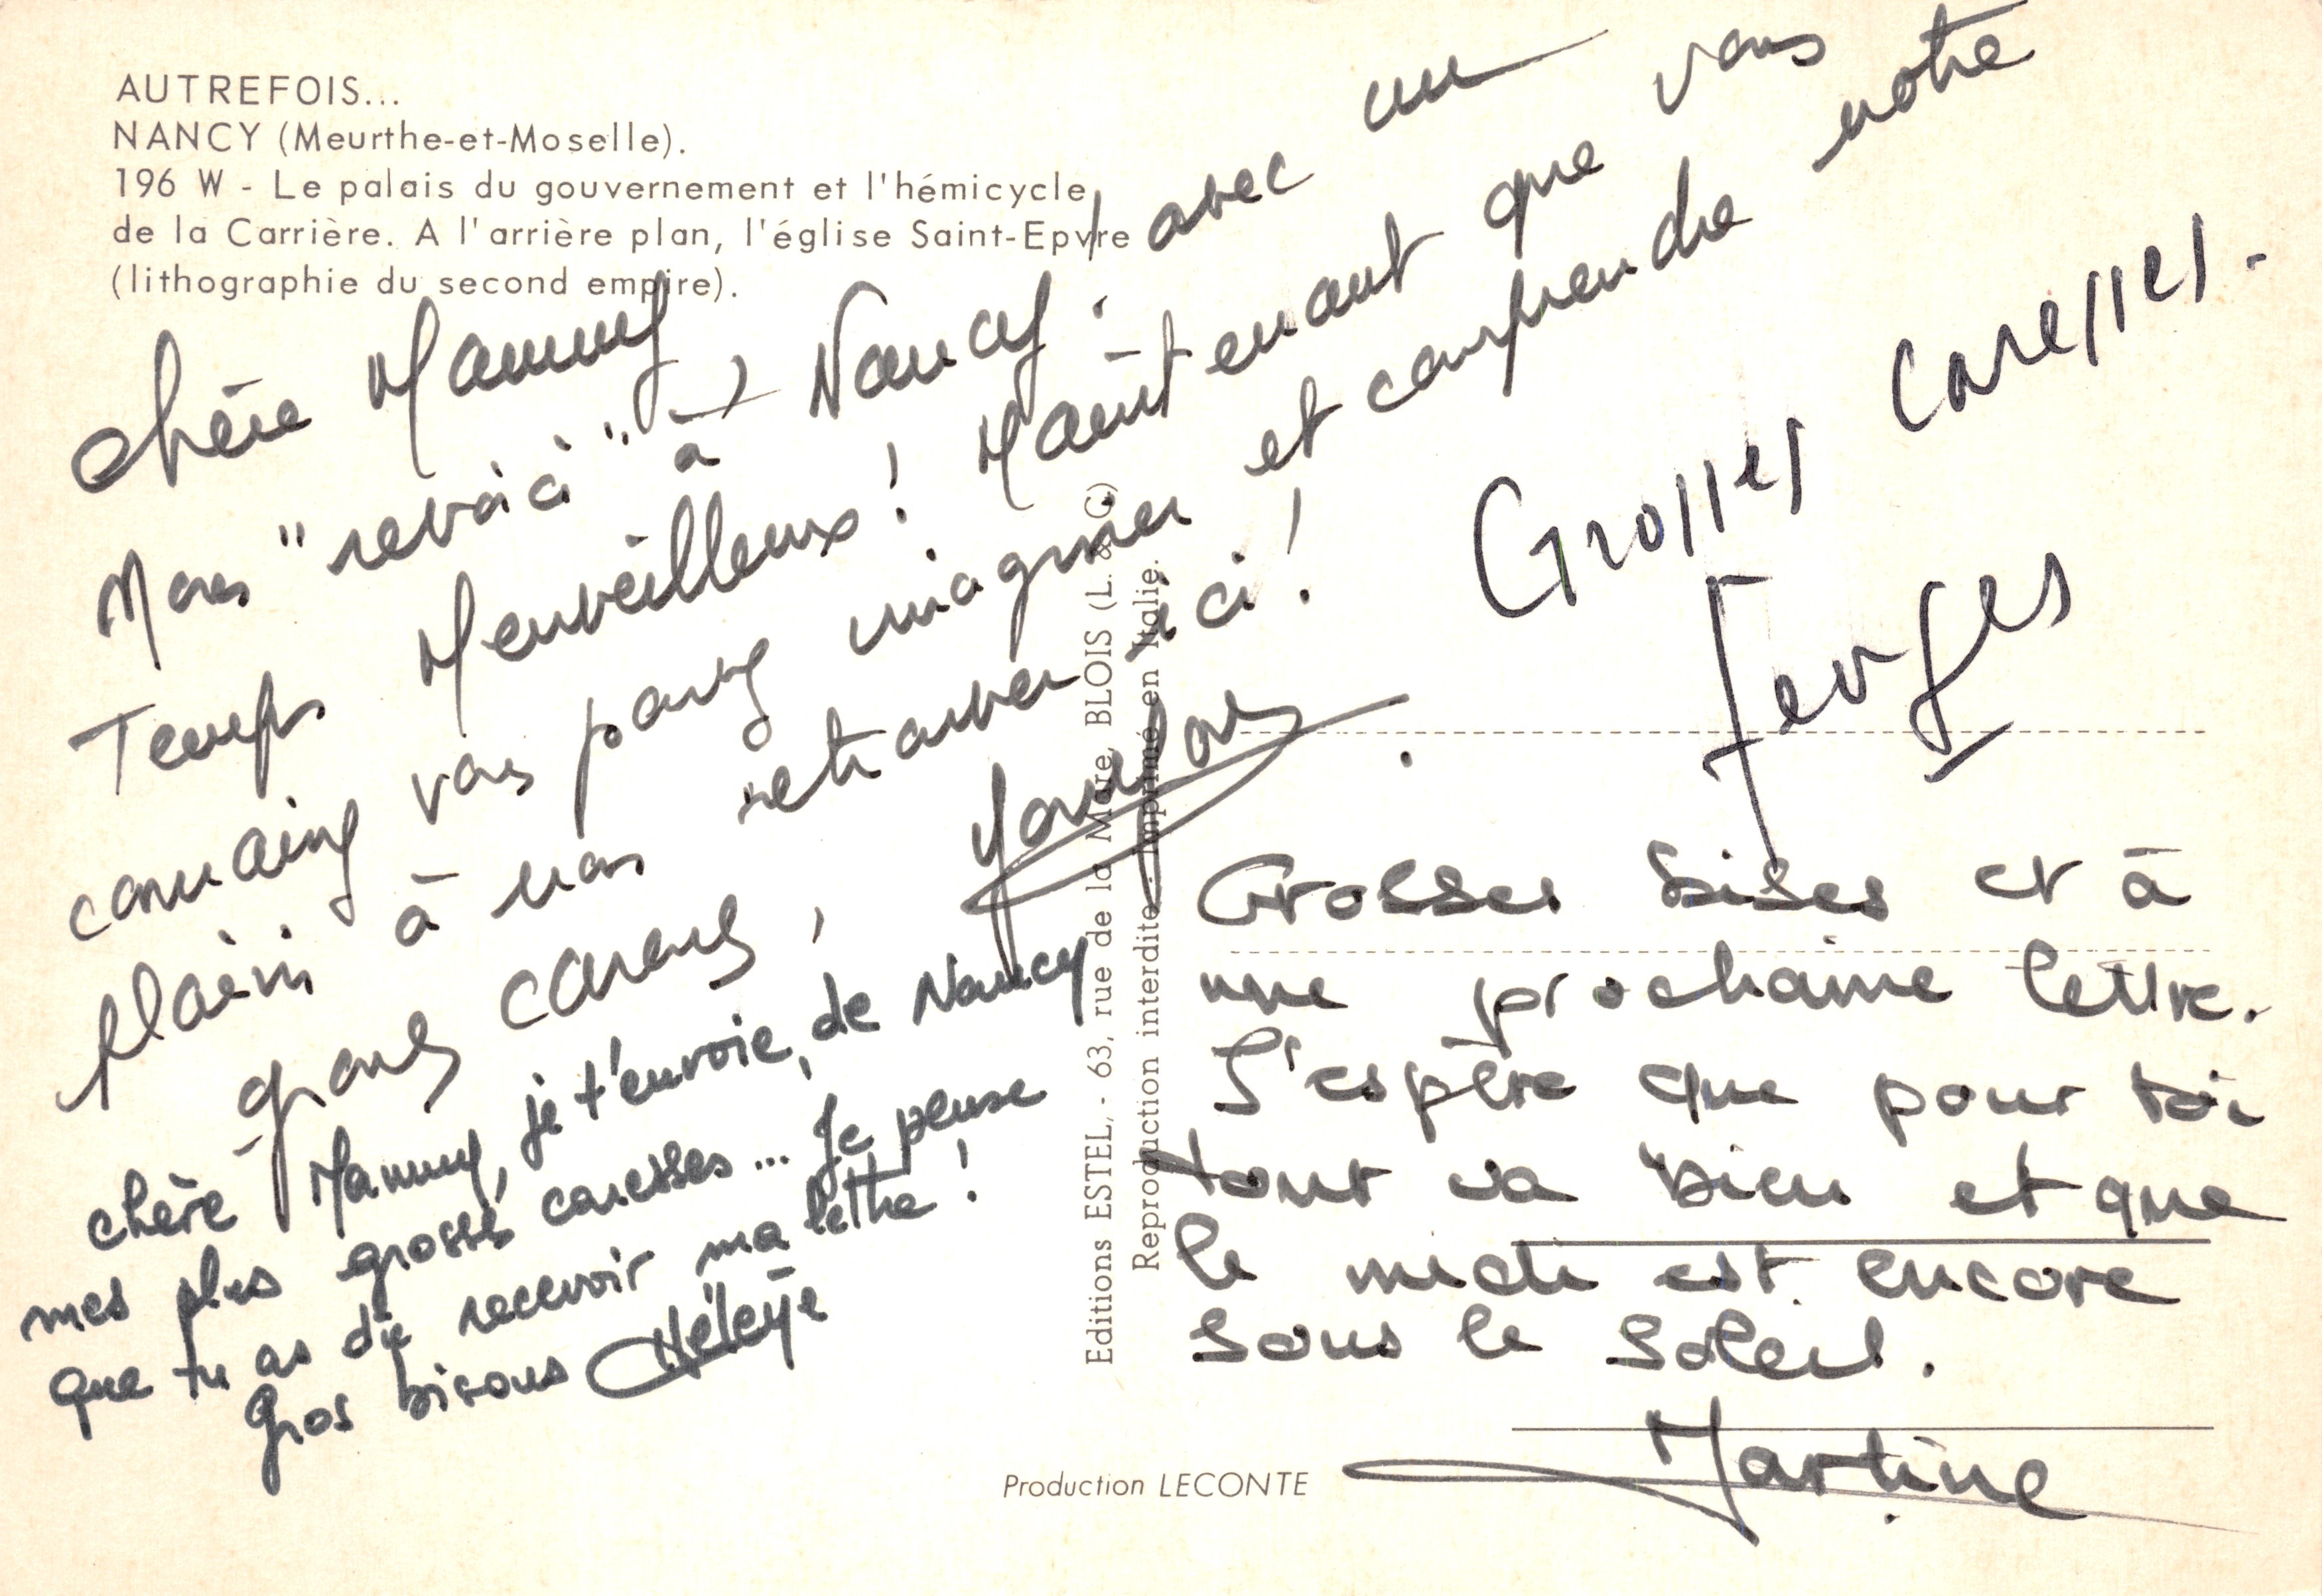 AUTREFOIS...
NANCY (Meurthe-et-Moselle).
196 W - Le palais du gouvernement et l'hémicycle
de la Carrière. A l'arrière plan, l'église Saint-Epvre
(lithographie du second empire).
Chère Mammy,
Nous "revoici" à Nancy, avec un
Temps Merveilleux ! Maintenant que vous
connaissez vous pouvez imaginer et comprendre notre
plaisir à nous retrouver ici !
gros
chère Mammy, je t'envoie, de Nancy
mes plus grosses caresses... Je pense
que tu as dû recevoir ma lettre !
Gros bisous Hélène
Editions ESTEL, - 63, rue de la Mare, BLOIS (L. & C.)
Reproduction interdite - Imprimé en Italie.
Grosses caresses.
Georges
Grosses bises et à
une prochaine lettre.
J'espère que pour toi
tout va bien et que
le midi est encore
sous le soleil.
Martine
Production LECONTE